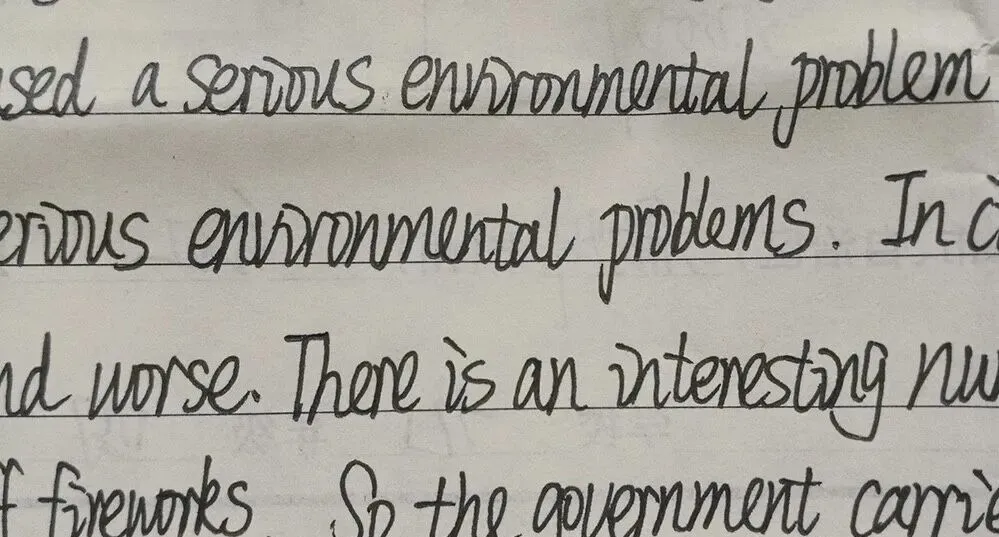 sed a serious environmental problem
erious environmental problems. In c
nd worse. There is an interesting nu
f fireworks. So the government carrie